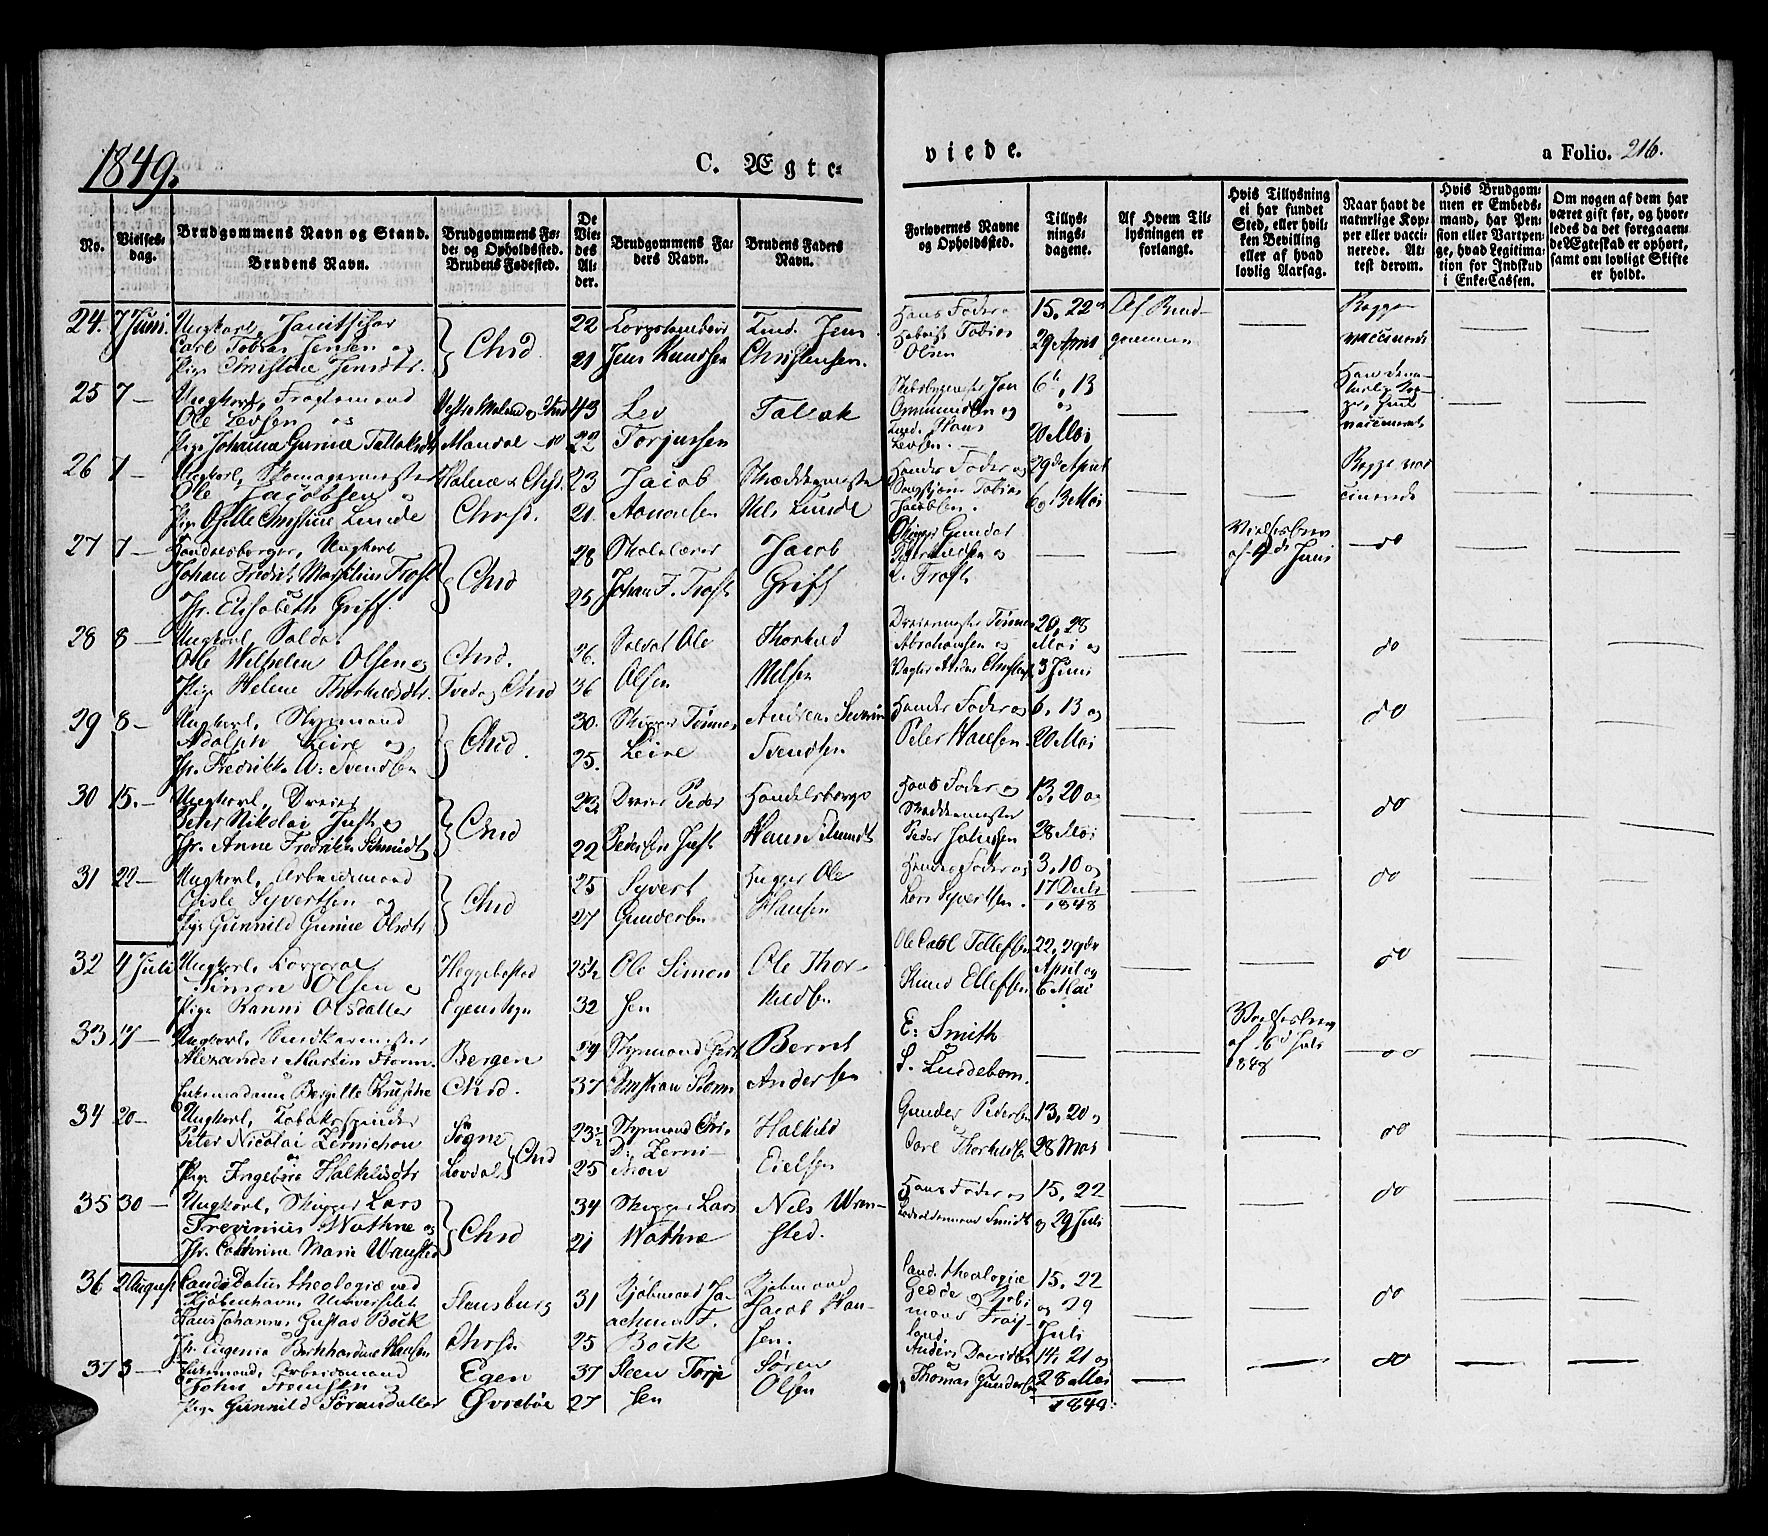 1849.
C. Ægte-
viede.
a Folio. 216.
No.
Vielses-
dag.
Brudgommens Navn og Stand.
Brudens Navn.
Brudgommens Fø-
de- og Opholdssted.
Brudens Fødested.
De
Vie-
des
Al-
der.
Brudgommens Fa-
ders Navn.
Brudens Faders
Navn.
Forlovernes Navne
og Opholdssted.
Tillys-
nings-
dagene.
Af Hvem Til-
lysningen er
forlangt.
Hvis Tillysning
ei har fundet
Sted, eller hvil-
ken Bevilling
eller af hvad
lovlig Aarsag.
Naar havt de
naturlige Kop-
per eller vacci-
nerede. At-
test derom.
Hvis Brudgom-
men er Embeds-
mand, har Pen-
sion eller Vartpen-
ge, hvad Legitima-
tion for Indskud
i Enke-Cassen.
Om nogen af dem har
været gift før, og hvor-
ledes da det foregaaen-
de Ægteskab er ophørt,
samt om lovligt Skifte
er holdt.
24. 7 Juni. Ungkarl, Janitschar
Carl Tobias Jensen og
Pige Christine Jensdtr.
Chrsd.
22
21
Jens Knudsen
Jens
Christensen.
Tobias
Olsen
15, 22 og
29 April
Af Brud-
gommen
Begge
vaccinerede
25 7 — Ungkarl,
Ole Levsen og
Pige Johanne Gurine Tallaksdtr
Mandal
43
22
Lev
Torjussen
Tallak
Ommundsen og
Hans
Levsen.
6te, 13
og
20 Mai
26 7 — Ungkarl, Skomagermester
Ole Jacobsen og
Pige Ofelle Christine Lunde
Chrsd.
23
21.
Jacob
Aanonsen
Skræddermester
Nils Lunde
Tobias
Jacobsen.
29de April
6, 13 Mai
Begge vac
cinerede
27 7 — Handelsborger, Ungkarl
Johan Fredrik Trost
Jfr. Elisabeth Griff.
Chrsd
28
25
Skolelærer
Johan F. Trost
Jacob
Griff
Skipper Gunder
Trost
Vielsesbrev
af Juni
do
28 8 — Ungkarl, Soldat
Ole Wilhelm Olsen og
Pige Helene Thorkildsdtr.
Chrsd.
Tved og Chrsd
26.
36
Soldat Ole
Olsen
Thorkild
Nilsen
Dreiermester Tønnes
Abrahamsen og
20, 28
Mai og
3 Juni
do
29 8 — Ungkarl, Styrmand
Adolph Leire og
Jfr. Fredrikke A: Svendsen
Chrsd.
30.
25.
Skipper Tønnes
Leire
Andreas Severin
Svendsen
Peter Hansen.
6, 13 og
20 Mai
do
30 15. — Ungkarl, Dreier
Peter Nikolai Just og
Jfr. Anne Fredrikke Schmidt
Chrsd
23
22
Dreier Peder
Pedersen Just
Handelsborger
Hans Schmidt
Hans Fader og
Skræddermester
Peder Johnsen
13, 20 og
28 Mai
do
31 22 — Ungkarl, Arbeidsmand
Gisle Syvertsen og
Pige Gunnild Gurine Olsdtr
Chrsd
25
27
Syvert
Gundersen
Ole
Hansen
Hendes Fader og
Lars Syvertsen.
3, 10 og
17 Dcbr
1848
do
32 4 Juli Ungkarl, Corporal
Simon Olsen og
Pige Ranni Olsdatter
Heggebostad
Egenssogn
25½
32
Ole Simon
sen
Ole Thor-
kildsen
Ole Carl Tellefsen
Knud Ellefsen
22, 29de
April og
6 Mai
do
33 17 — Ungkarl,
Alexander Martin Storm.
Enkemadame Bergitte
Bergen
Chrsd.
29
37
Styrmand Gert
Christian Storm
Bernt
Andersen
E: Smith
S. Lundebom.
Vielsesbrev
af 6d Juli
1848
do
34 20 — Ungkarl, Tobaksspinder
Peter Nicolai Zernichow
Pige Ingeborg Halkildsdtr
Søgne
Lovdals
Chrsd
23½
25
Styrmand Chr.
D: Zerni-
chow
Halkild
Eielsen
Gunder Pedersen
Carl Thorkildsen
13, 20 og
28 Mai
do
35 30 — Ungkarl, Skipper Lars
Frevinius Wathne og
Jfr. Cathrine Marie Wrensted
Chrsd
34
21
Skipper Lars
Wathne
Niels Wren-
sted.
Hans Fader og
Smidt
15, 22
og 29 Juli
do
36 2 August Candidatus theologiæ ved
Kjøbenhavns Universitet
Hans Johannes Gustav Bock
Jfr. Eugenia Bernhardine Hansen
Flensburg
Chrsd.
31
25
Kjøbmand Jo-
achim F.
Bock
Kjøbmand
Jacob Han-
sen.
Cand. theologiæ
Gedde og Kjøb-
mand Frois-
land.
15, 22
og 29
Juli
do
37 3 — Enkemand, Arbeidsmand
John Steensen
Pige Gunnild Sørensdatter
Egen
Øvrebøe
37
27
Steen Torje
sen
Søren
Olsen
Anders Davidsen
Thomas Gundersen
14, 21 og
28 Mai
1848.
do